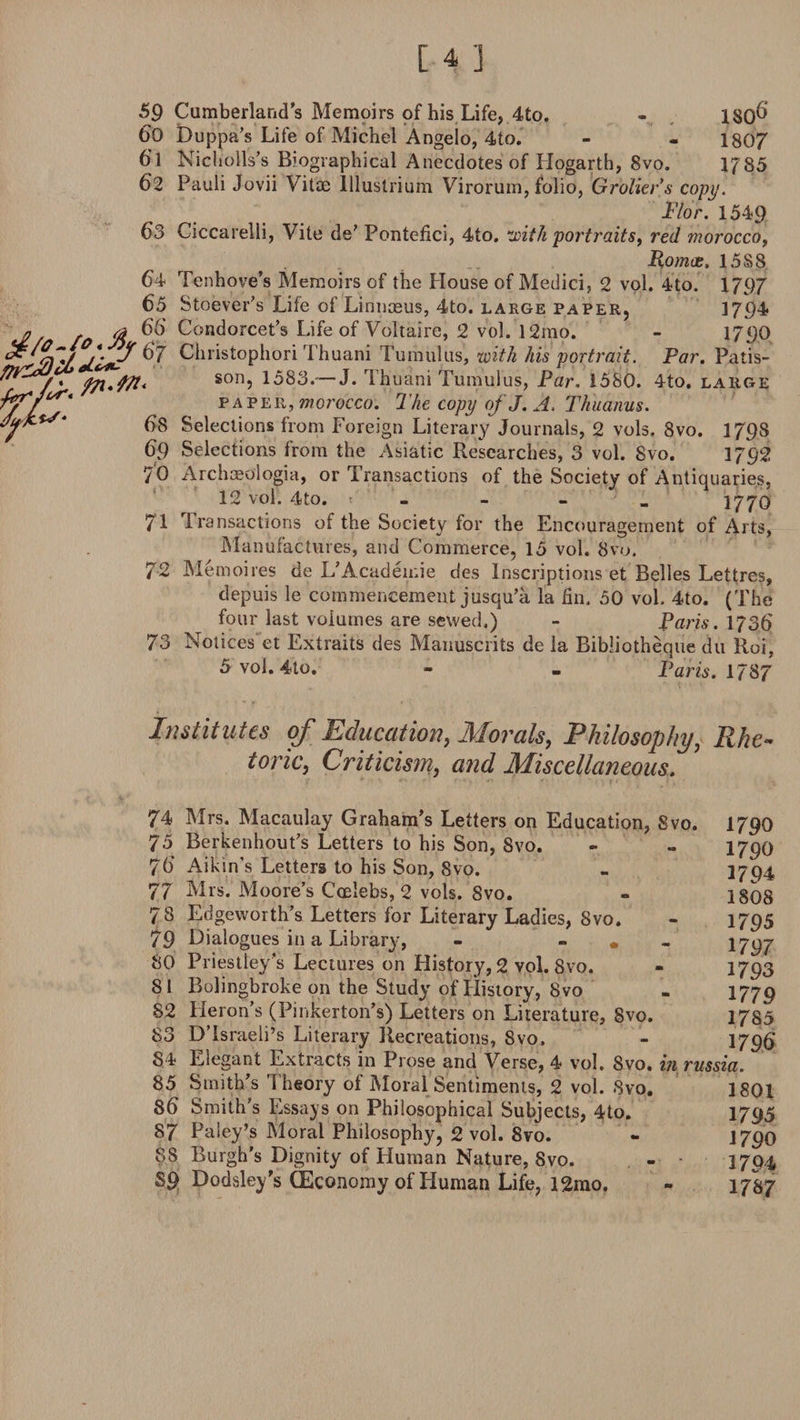 [ 4 ]
59 Cumberland's Memoirs of his Life, 4to. - 1806
60 Duppa's Life of Michel Angelo, 4to. - - 1807
61 Nicholls's Biographical Anecdotes of Hogarth, 8vo. 1785
62 Pauli Jovii Vitæ Illustrium Virorum, folio, Grolier's copy.
Flor. 1549
63 Ciccarelli, Vite de' Pontefici, 4to. with portraits, red morocco,
Romæ, 1588
64 Tenhove's Memoirs of the House of Medici, 2 vol. 4to. 1797
65 Stoever's Life of Linnæus, 4to. LARGE PAPER, 1794
66 Condorcet's Life of Voltaire, 2 vol. 12mo. - 1790
£10-10s. By
67 Christophori Thuani Tumulus, with his portrait. Par. Patis-
son, 1583.—J. Thuani Tumulus, Par. 1580. 4to. LARGE
PAPER, morocco. The copy of J. A. Thuanus.
68 Selections from Foreign Literary Journals, 2 vols. 8vo. 1798
69 Selections from the Asiatic Researches, 3 vol. 8vo. 1792
70 Archæologia, or Transactions of the Society of Antiquaries,
12 vol. 4to. - - - - 1770
71 Transactions of the Society for the Encouragement of Arts,
Manufactures, and Commerce, 15 vol. 8vo.
72 Mémoires de L'Académie des Inscriptions et Belles Lettres,
depuis le commencement jusqu'à la fin. 50 vol. 4to. (The
four last volumes are sewed.) - Paris. 1736
73 Notices et Extraits des Manuscrits de la Bibliothèque du Roi,
5 vol. 4to. - - Paris. 1787
Institutes of Education, Morals, Philosophy, Rhe-
toric, Criticism, and Miscellaneous.
74 Mrs. Macaulay Graham's Letters on Education, 8vo. 1790
75 Berkenhout's Letters to his Son, 8vo. - - 1790
76 Aikin's Letters to his Son, 8vo. - 1794
77 Mrs. Moore's Cœlebs, 2 vols. 8vo. - 1808
78 Edgeworth's Letters for Literary Ladies, 8vo. - 1795
79 Dialogues in a Library, - - - 1797
80 Priestley's Lectures on History, 2 vol. 8vo. - 1793
81 Bolingbroke on the Study of History, 8vo - 1779
82 Heron's (Pinkerton's) Letters on Literature, 8vo. 1785
83 D'Israeli's Literary Recreations, 8vo. - 1796
84 Elegant Extracts in Prose and Verse, 4 vol. 8vo. in russia.
85 Smith's Theory of Moral Sentiments, 2 vol. 8vo. 1801
86 Smith's Essays on Philosophical Subjects, 4to. 1795
87 Paley's Moral Philosophy, 2 vol. 8vo. - 1790
88 Burgh's Dignity of Human Nature, 8vo. - - 1794
89 Dodsley's Œconomy of Human Life, 12mo, - 1787